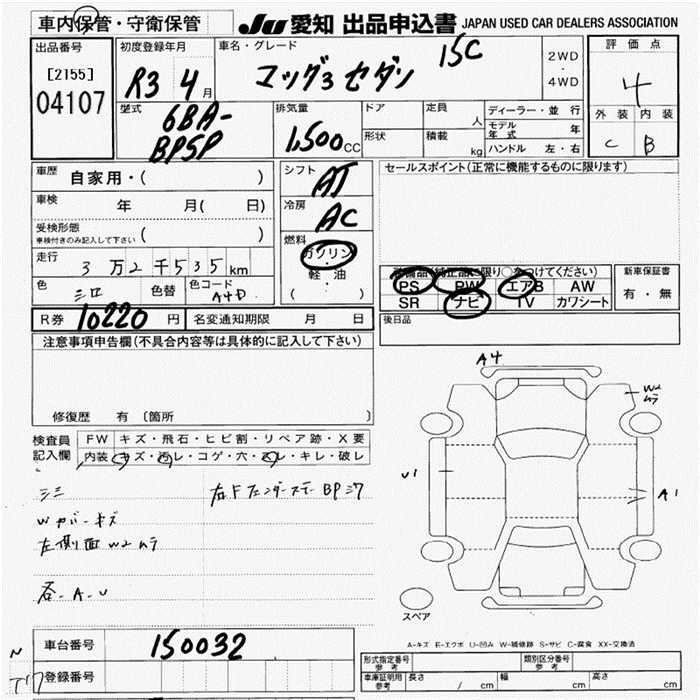 車内保管・守衛保管
JU 愛知 出品申込書 JAPAN USED CAR DEALERS ASSOCIATION
出品番号
[2155]
04107
初度登録年月
R3 4月
車名・グレード
マツダ3 セダン 15C
2WD
・
4WD
評価点
4
外装 内装
C B
型式
6BA-
BP5P
排気量
1,500cc
ドア
形状
定員 人
積載 kg
ディーラー・並行
モデル年式 年
ハンドル 左・右
車歴 自家用・( )
車検 年 月( 日)
受検形態
車検付きのみ記入して下さい ( )
走行 3万2千535km
色 シロ 色替 色コード A4D
シフト AT
冷房 AC
燃料
ガソリン
・
軽油
( )
セールスポイント(正常に機能するものに限ります)
装備品(純正品に限り○をつけてください)
PS PW エアB AW
SR ナビ TV カワシート
新車保証書
有・無
R券 10220円 名変通知期限 月 日
後日品
注意事項申告欄(不具合内容等は具体的に記入して下さい)
修復歴 有〔箇所 〕
検査員
記入欄
FW キズ・飛石・ヒビ割・リペア跡・X要
内装 キズ・汚レ・コゲ・穴・スレ・キレ・破レ
シミ
Wカバーキズ
左側面W2ムラ
各-A-U
右Fフェンダーステー BPミワ
A4
W2
ムラ
U1
A1
スペア
A-キズ E-エクボ U-凹み W-補修跡 S-サビ C-腐食 XX-交換済
車台番号 150032
登録番号
形式指定番号
参考
類別区分番号
参考
車庫証明用
参考
長さ / cm 幅 cm 高さ cm